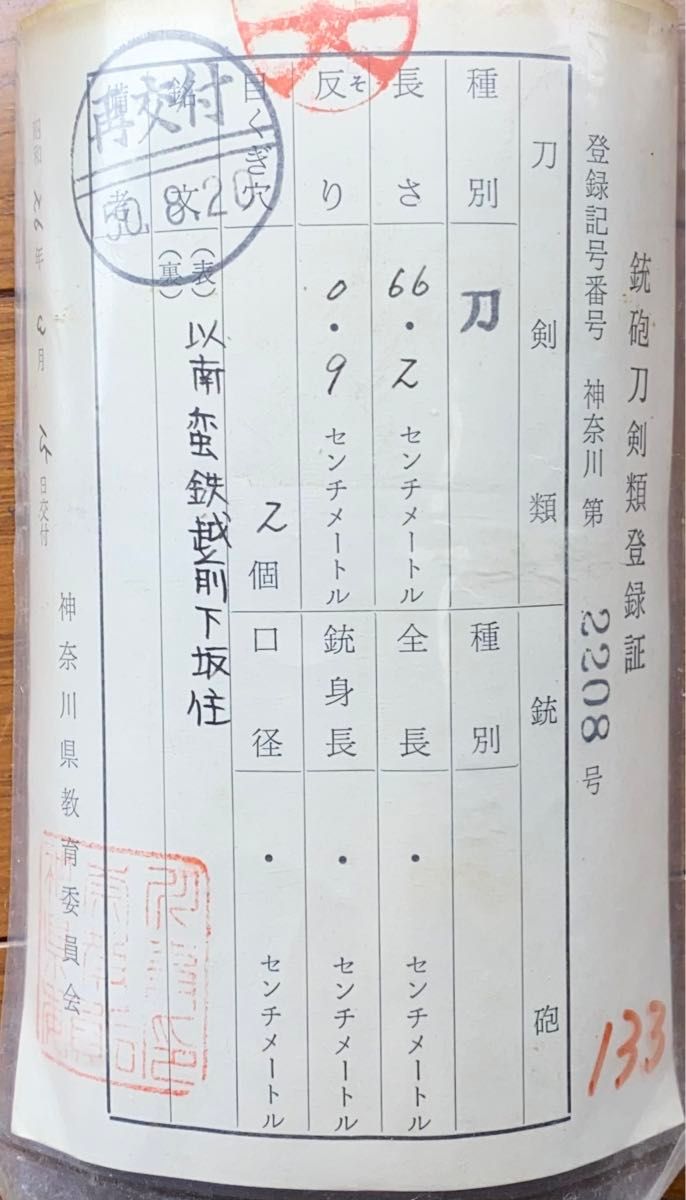 銃砲刀剣類登録証
登録記号番号 神奈川 第 2208 号
133
刀剣類 銃砲
種別 刀 種別
長さ 66・2 センチメートル 全長 ・ センチメートル
反り そ 0・9 センチメートル 銃身長 ・ センチメートル
目くぎ穴 2個 口径 ・ センチメートル
銘文 (表) 以南蛮鉄越前下坂住
(裏)
備考
再交付
50.8.20
昭和 26年 月 日交付
神奈川県教育委員会